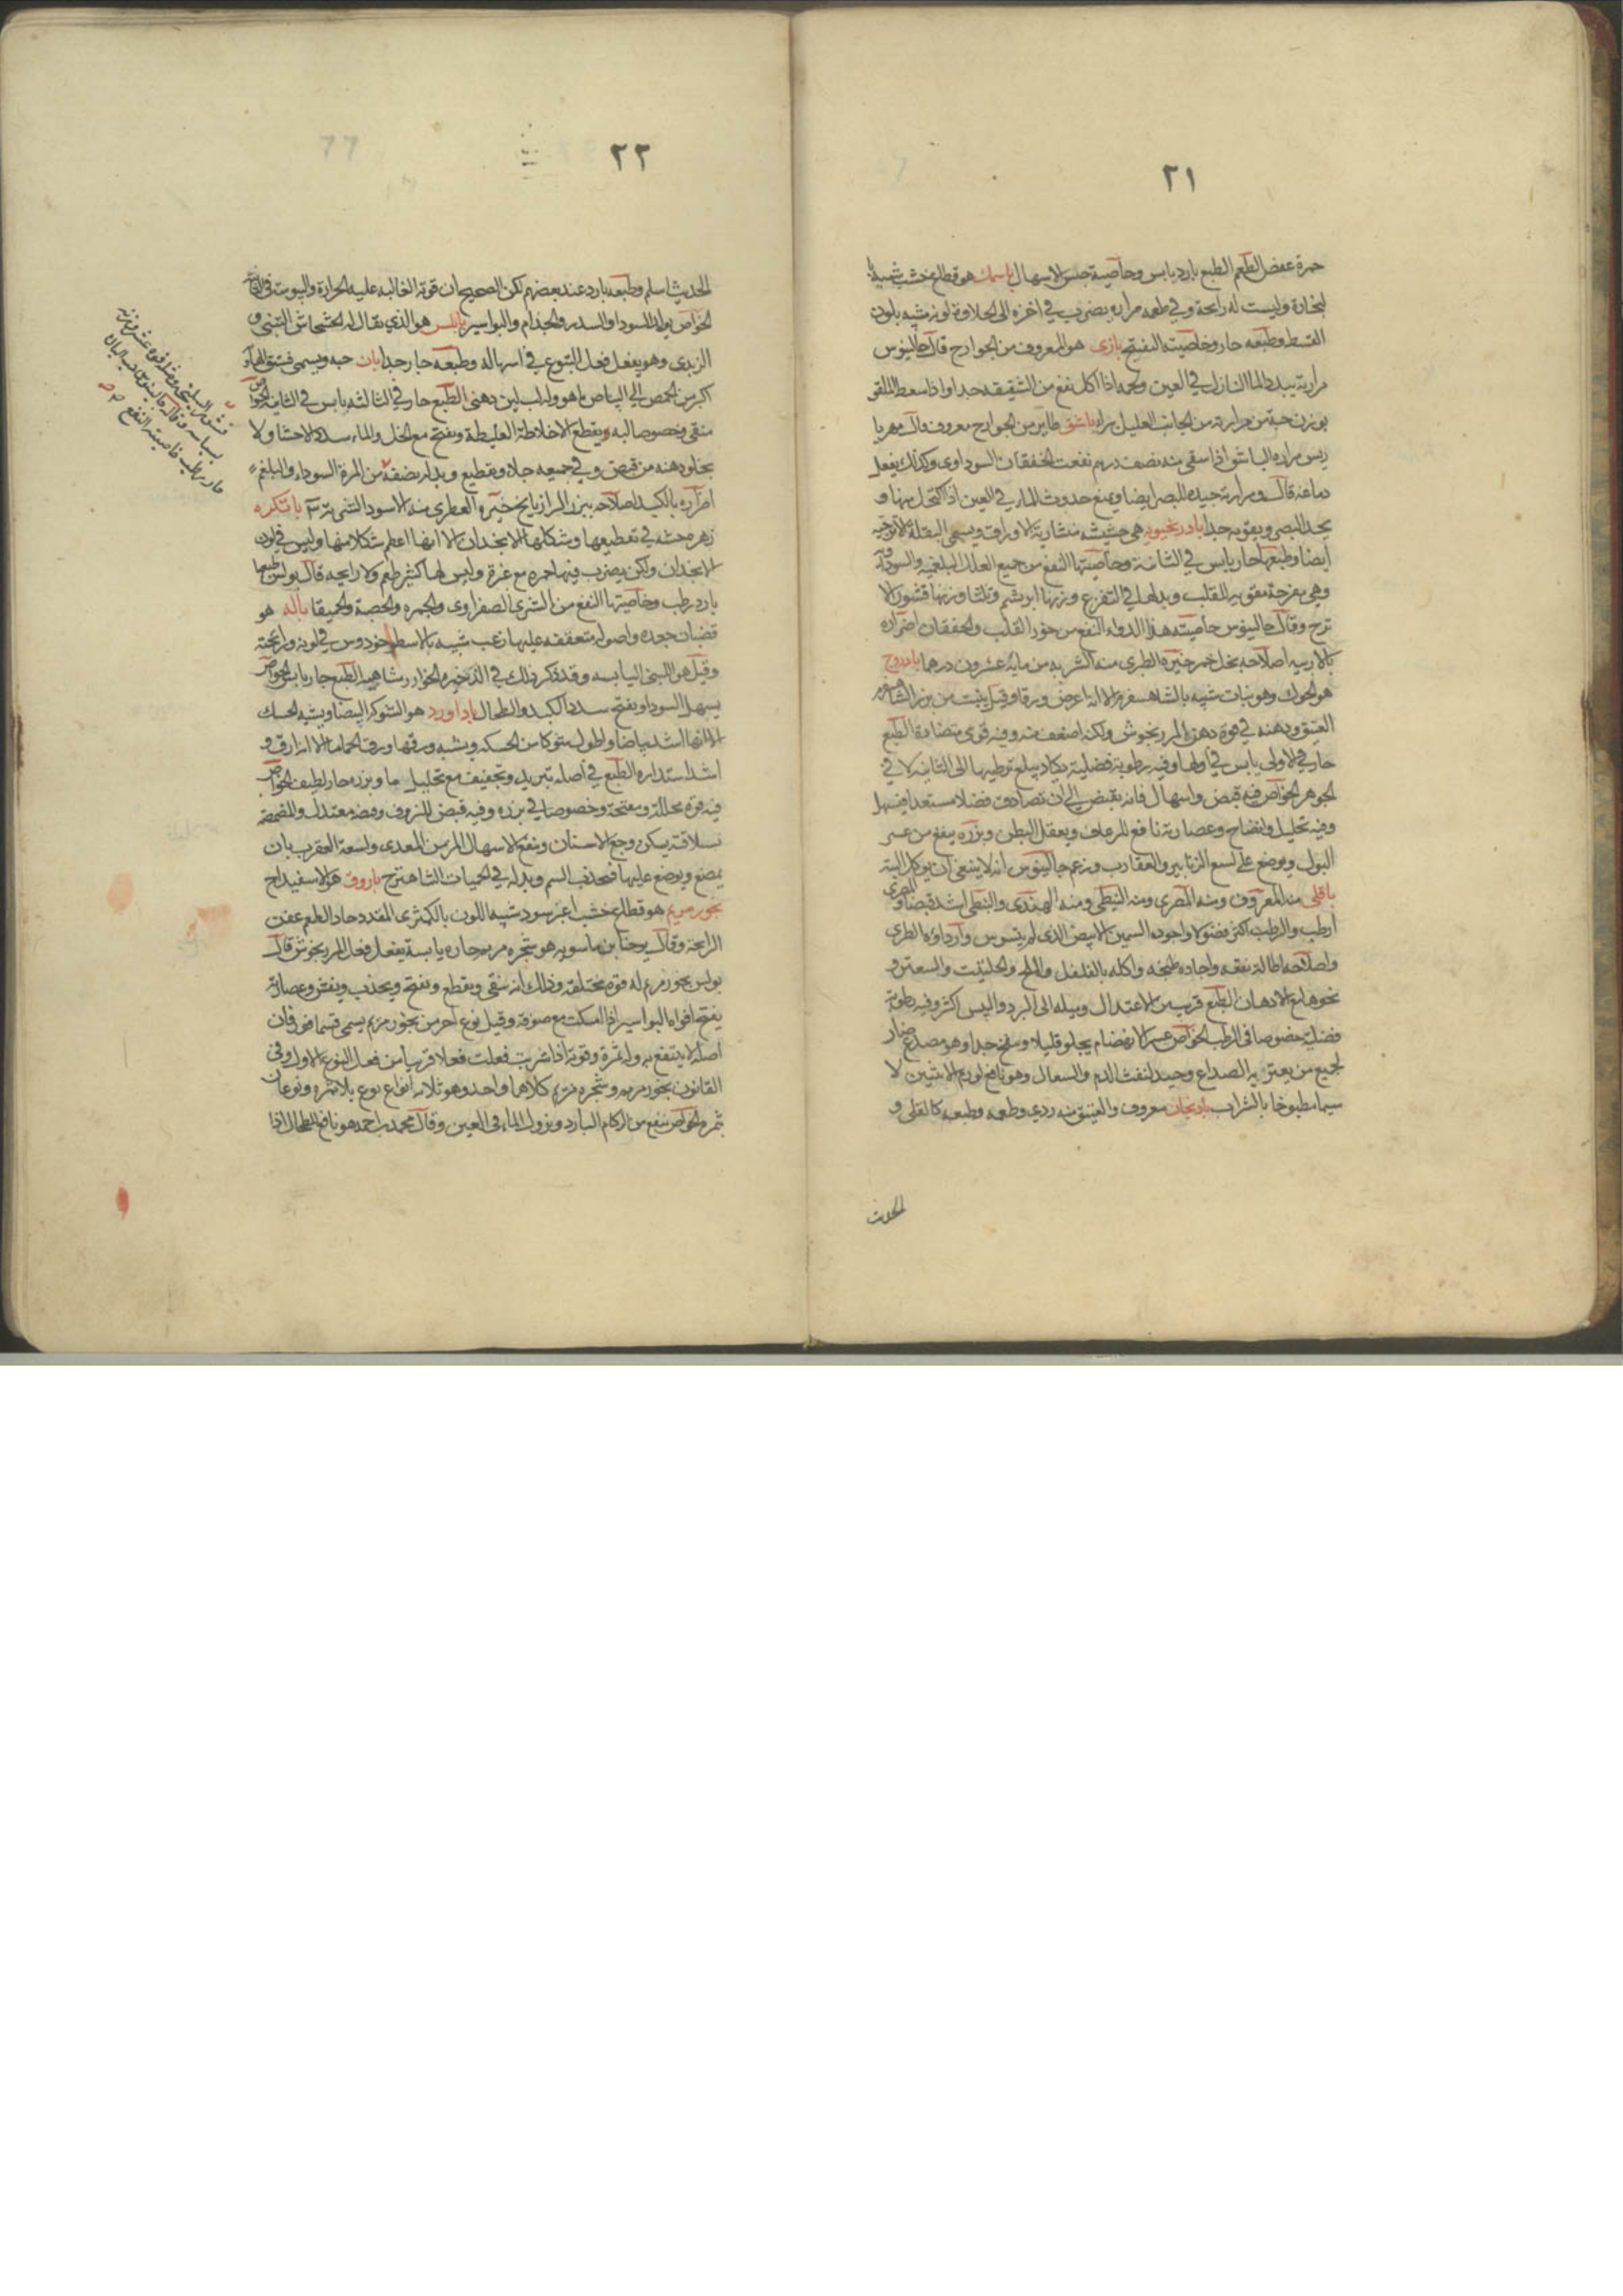 ٢١
حمرة عفص الطعم الطبع بارد يابس وخاصيته حبس الاسهال باسمك هو قطاع خشب شبيه
ليست له رايحة وفي طعمه مرارة يضرب في اخره الى الحلاوة لونه شبيه بلون
القسط وطبعه حار وخاصيته التفتيح بازى هو المعروف من الجوارح قال جالينوس
مرارته يبدد الما النازل في العين ولحمه اذا اكل نفع من الشقيقة جدا واذا سعط الملقو
بوزن حبة من مرارته من الجانب العليل براه باشق طاير من الجوارح معروف قال مهريا
ريس مراره الباشق اذا سقى منه نصف درهم نفعت الخفقان السوداوى وكذلك يفعل
دماغه قال ومرارته جيده للبصر ايضا ويمنع حدوث الماء في العين اذا اكتحل بها و
يحد البصر ويقويه جدا بادرنجبويه هى حشيشه منشارية الاوراق ويسمى البقلة الاترجيه
ايضا وطبعها حار يابس في الثانية وخاصيتها النفع من جميع العلل البلغمية والسوداو
وهى مفرحة مقويه للقلب وبدلها في التفريح وزنها ابريشم وثلثا وزنها قشور الا
ترج وقال جالينوس خاصيته هذا الدواء النفع من خور القلب والخفقان اضراره
بالاربيه اصلاحه بخل خمر خيره الطرى منه الشربه من مايه عشرون درهما بادروج
هو الحوك وهو نبات شبيه بالشاهسفرم الا انه اعرض ورقا وقيل ينبت من بزر الشاهسفرم
العتيق ودهنه في قوة دهن المرزنجوش ولكنه اضعف منه وفيه قوى متضادة الطبع
حار في الاولى يابس في اولها وفيه رطوبة فضلية يكاد يبلغ ترطيبها الى الثانيه لا في
الجوهر الخواص فيه قبض واسهال فانه يقبض الى ان تصادف فضلا مستعدا فيسهل
وفيه تحليل وانضاج وعصارته نافع للرعاف ويعقل البطن وبزره ينفع من عسر
البول ويوضع على لسع الزنابير والعقارب وزعم جالينوس انه لا ينبغى ان يوكل البته
باقلى منه المعروف ومنه المصرى ومنه النبطى ومنه الهندى والنبطى اشد قبضا والمصرى
ارطب والرطب اكثر فضولا واجوده السمين الابيض الذى لم يتسوس واردأوه الطرى
واصلاحه اطالة نقعه واجاده طبخه واكله بالفلفل والملح والحلتيت والسعتر و
نحوها مع الادهان الطبع قريب من الاعتدال وميله الى البرد واليبس اكثر وفيه رطوبة
فضلية خصوصا في الرطب الخواص عسر الانهضام يجلو قليلا وينفخ جدا وهو مصدع ضار
لجميع من يعتريه الصداع وجيد لنفث الدم والسعال وهو نافع لورم الانثيين لا
سيما مطبوخا بالشراب بادنجان معروف والعتيق منه ردى وطعمه وطبعه كالقلى و
الحديث
٢٢
الحديث اسلم وطبعه بارد عند بعضهم لكن الصحيح ان قوته الغالبه عليه الحرارة واليبوسة في الثانيه
الخواص يولد السودا والسدر والجذام والبواسير بابلس هو الذى يقال له الخشخاش
الزبدى وهو يفعل فعل اليتوع في اسهاله وطبعه حار جدا بان حبه ويسمى فستق
اكبر من الحمص الى البياض ما هو وله لب لين دهنى الطبع حار في الثالثه يابس في الثانيه الخواص
منقى وخصوصا لبه ويقطع الاخلاط الغليظة ويفتح مع الخل والماء سدد الاحشا ولا
يخلو دهنه من قبض وفي جميعه جلاء وتقطيع وبدله نصفه من المرة السوداء والبلغم
اضراره بالكبد اصلاحه ببزر الرازيانج خيره العطرى منه الاسود الشربه
زهر خشنه في تقطيعها وشكلها الانجدان الا انها اعظم شكلا منها وليس في لون
الانجدان ولكن يضرب فيها حمره مع غبرة وليس لها كثير طعم ولا رايحه قال بولس طبعها
بارد رطب وخاصيتها النفع من الشرى الصفراوى والجمره والحصبة والحميقا باله هو
قضبان جعده واصوله متعقفه عليها زغب شبيه بالاسطوخودوس في لونه ورايحته
وقيل هو اللبنى اليابسه وقد ذكر ذلك في الذخيره الطبع حار يابس الخواص
يسهل السودا ويفتح سدد الكبد والطحال باداورد هو الشوكة البيضا ويشبه الحسك
الا انها اشد بياضا واطول شوكا من الحسكه ويشبه ورقها ورق الحماما الا انه ارق و
اشد استداره الطبع في اصله تبريد وتجفيف مع تحليل ما وبزره حار لطيف الخواص
فيه قوة محللة ومفتحة وخصوصا في بزره وفيه قبض للنزوف ومضه معتدل والمضمضه
بسلاقته يسكن وجع الاسنان وينفع الاسهال المزمن المعدى ولسعة العقرب بان
يمضغ ويوضع عليها فيجذب السم وبدله في الحميات الشاهترج باروق هو الاسفيداج
بخور مريم هو قطاع خشب اغبر سود شبيه اللون بالكمثرى المقدد حاد الطعم عفن
الرايحة وقال يوحنا بن ماسويه هو شجره مريم حاره يابسة يفعل فعل المرزنجوش قال
بولس بخور مريم له قوة مختلفة وذلك انه ينقى ويقطع ويفتح ويجذب ويفش وعصارته
يفتح افواه البواسير اذا امسكت مع صوفة وقيل نوع اخر من بخور مريم يسمى فان
اصله لا ينتفع به وله ثمرة وقوية اذا شربت فعلت فعلا قريبا من فعل النوع الاول وفي
القانون بخور مريم وشجره مريم كلاهما واحد وهو ثلاثه انواع نوع بلا ثمره ونوعان
بثمر الخواص ينفع من الزكام البارد ونزول الماء في العين وقال محمد بن احمد هو نافع للطحال اذا
قشور السليخه
بسباسه وقال جالينوس
حار رطب خاصيته النفع